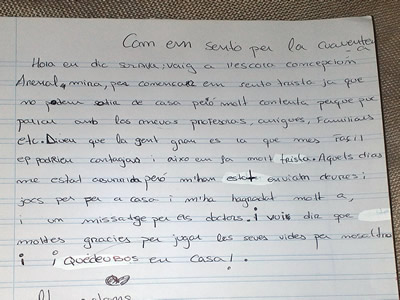 Com em sento per la cuarentena
Hola em dic        i vaig a l'escola concepción
Arenal,        , per començar em sento trista ja que
no podem sortir de casa però molt contenta perque puc
parlar amb les meves profesoras, amigues, familiars
etc. Diuen que la gent gran es la que mes fàcil
ep podrien contagiar i aixo em fa molt trista. Aquets dias
me estat aburrida però m'han estat enviant deures i
jocs per fer a casa i m'ha hagradat molt a,
i un missatge per els doctors. i vuis dir que
moltes gracies per jugar les seves vides per nosaltras
i i Quedeu-bos en casa!.